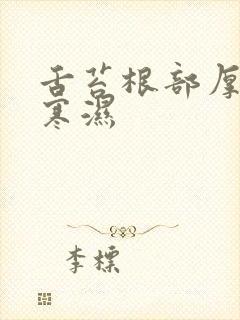 舌苔根部厚
寒湿
李標